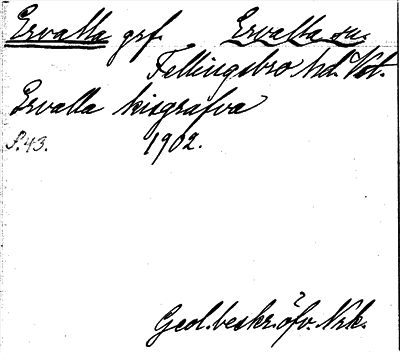 Ervalla grf. Ervalla sn.
Fellingsbro hd. Vstm.
Ervalla kisgrufva
S.43. 1902.
Geol. beskr. öfv. Nrk.